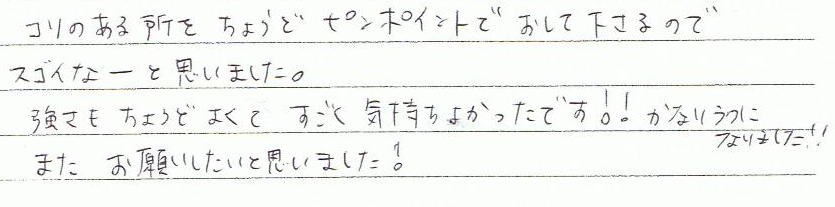 コリのある所を ちょうど ピンポイントで おして下さるので
スゴイなーと思いました。
強さも ちょうどよくて すごく 気持ちよかったです!! かなりうつに
なりました!!
また お願いしたいと思いました!